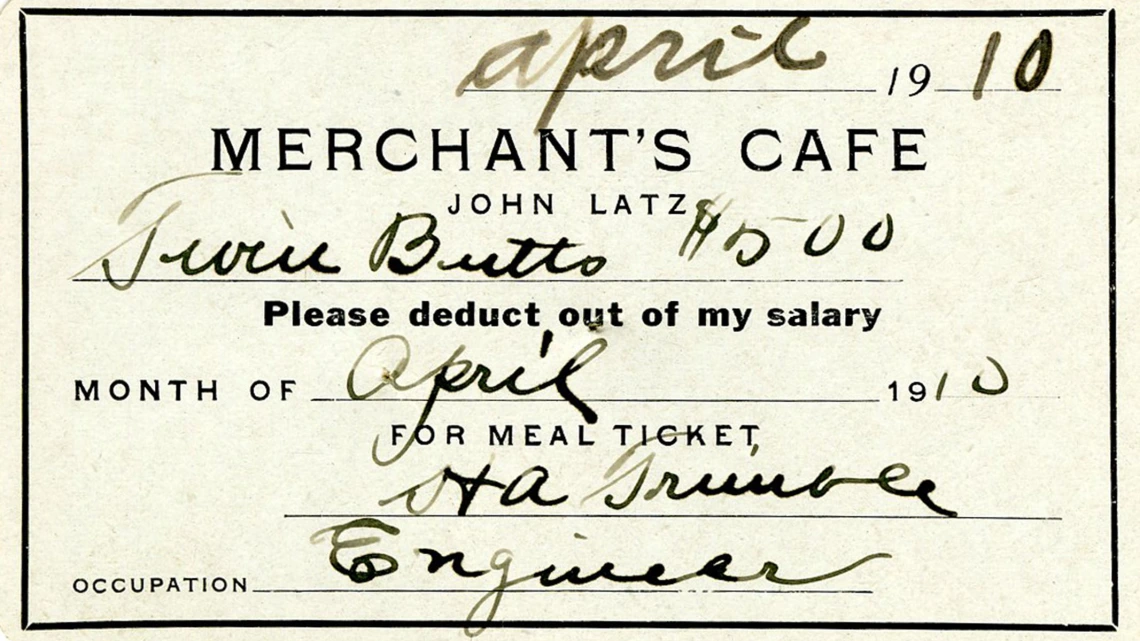 April 1910
MERCHANT'S CAFE
JOHN LATZ
Twin Butts $500
Please deduct out of my salary
MONTH OF April 1910
FOR MEAL TICKET
HA Trimble
OCCUPATION Engineer